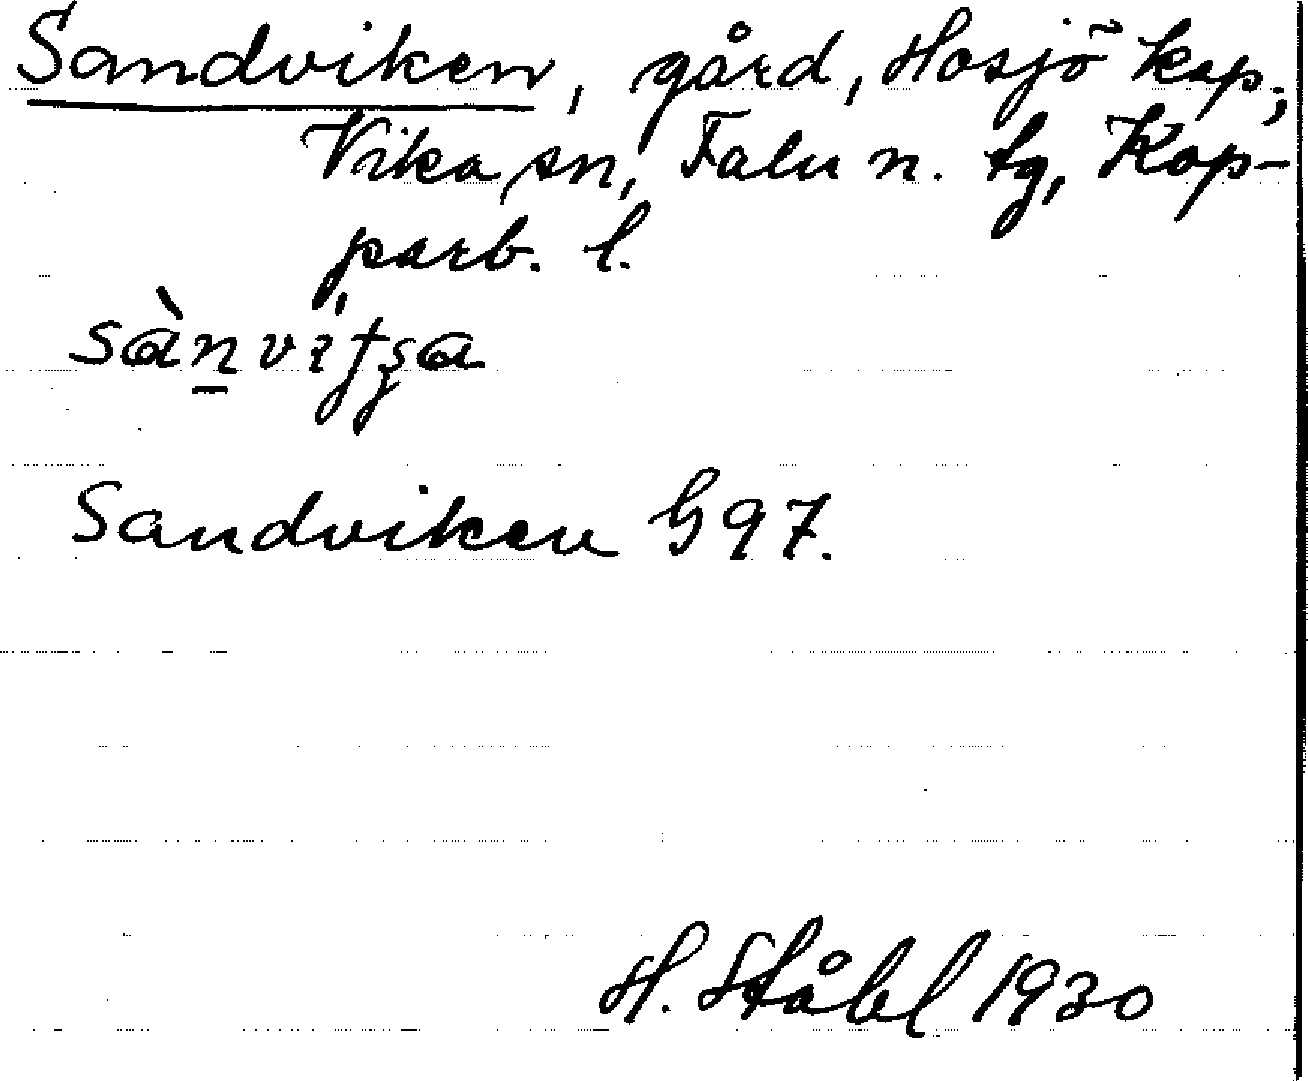 Sandviken, gård, Hosjö kap;
Vika sn, Falu n. tg, Kop-
parb. l.
Sandviken G97.
H. Ståhl 1930